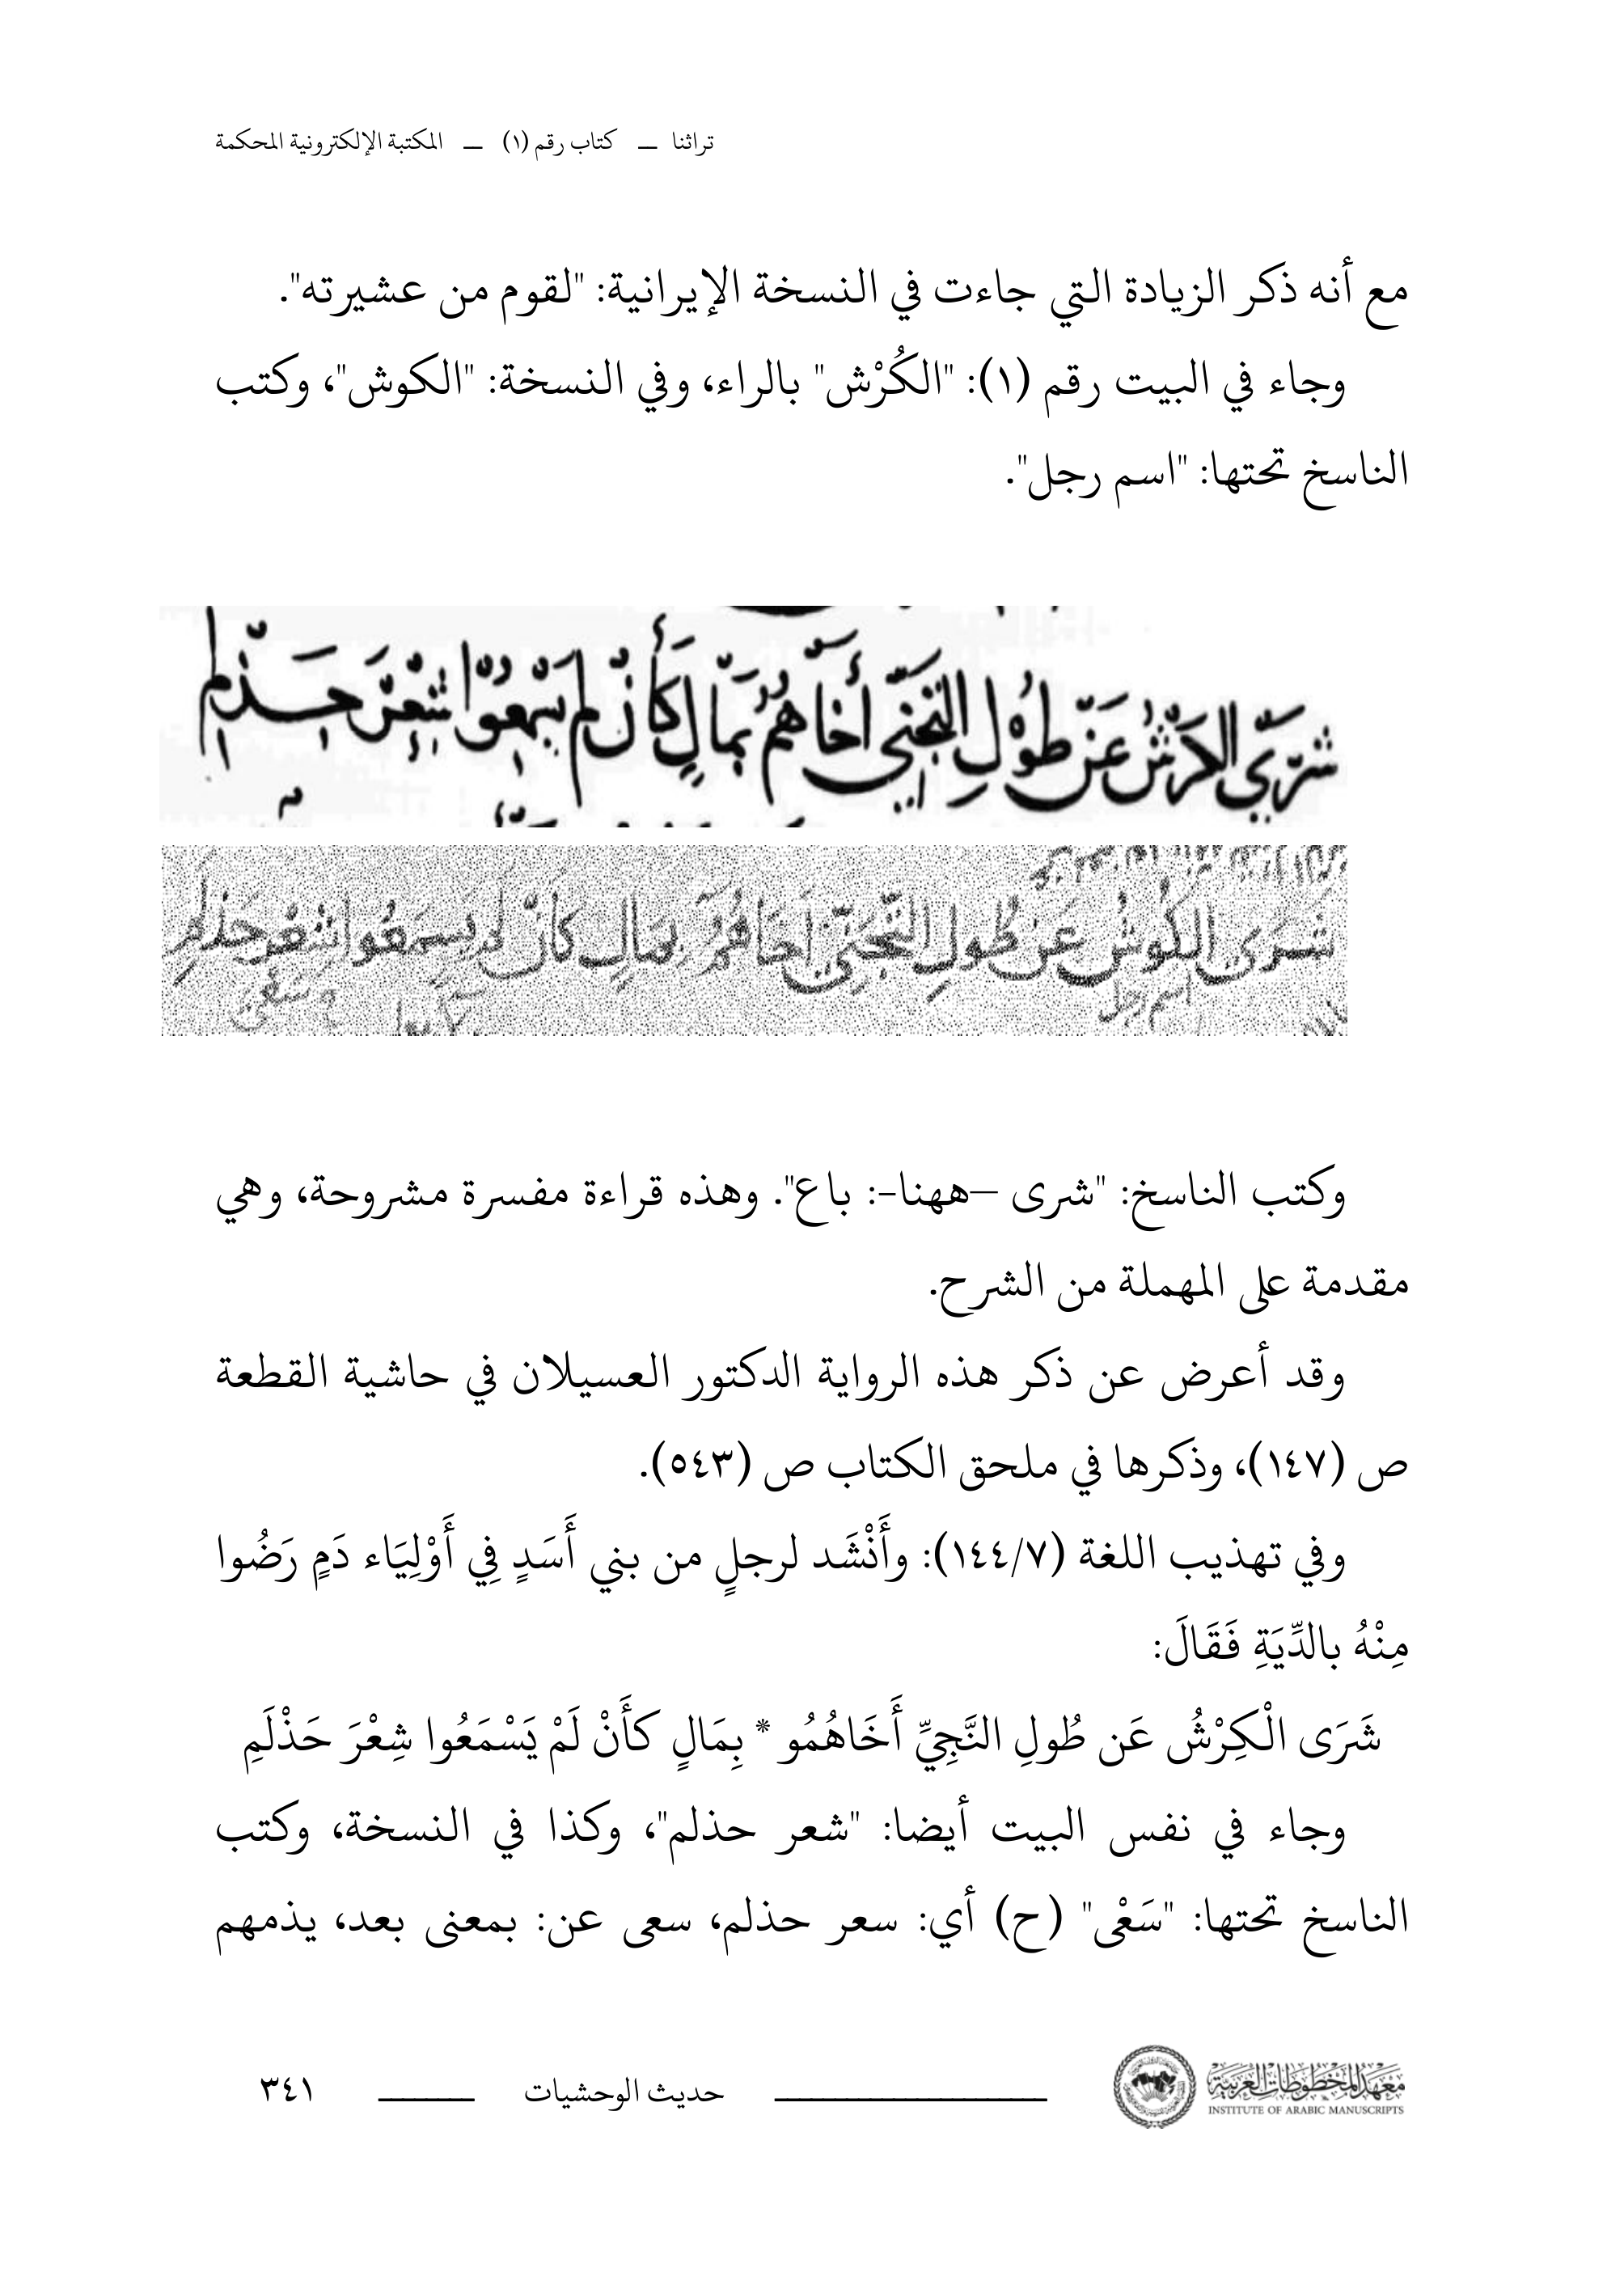 تراثنا — كتاب رقم (١) — المكتبة الإلكترونية المحكمة
مع أنه ذكر الزيادة التي جاءت في النسخة الإيرانية: "لقوم من عشيرته".
وجاء في البيت رقم (١): "الكُرْش" بالراء، وفي النسخة: "الكوش"، وكتب
الناسخ تحتها: "اسم رجل".
شرى الكرش عن طول التجني أخاهم بمال كأن لم يسمعوا شعر حذلم
شرى الكوش عن طول التجني أخاهم بمال كان لم يسمعوا شعر حذلم
اسم رجل
سعى
وكتب الناسخ: "شرى –ههنا-: باع". وهذه قراءة مفسرة مشروحة، وهي
مقدمة على المهملة من الشرح.
وقد أعرض عن ذكر هذه الرواية الدكتور العسيلان في حاشية القطعة
ص (١٤٧)، وذكرها في ملحق الكتاب ص (٥٤٣).
وفي تهذيب اللغة (١٤٤/٧): وأَنْشَد لرجلٍ من بني أَسَدٍ فِي أَوْلِيَاء دَمٍ رَضُوا
مِنْهُ بالدِّيَةِ فَقَالَ:
شَرَى الْكِرْشُ عَن طُولِ النَّجِيِّ أَخَاهُمُو * بِمَالٍ كأَنْ لَمْ يَسْمَعُوا شِعْرَ حَذْلَمِ
وجاء في نفس البيت أيضا: "شعر حذلم"، وكذا في النسخة، وكتب
الناسخ تحتها: "سَعْى" (ح) أي: سعر حذلم، سعى عن: بمعنى بعد، يذمهم
معهد المخطوطات العربية
INSTITUTE OF ARABIC MANUSCRIPTS
حديث الوحشيات
٣٤١